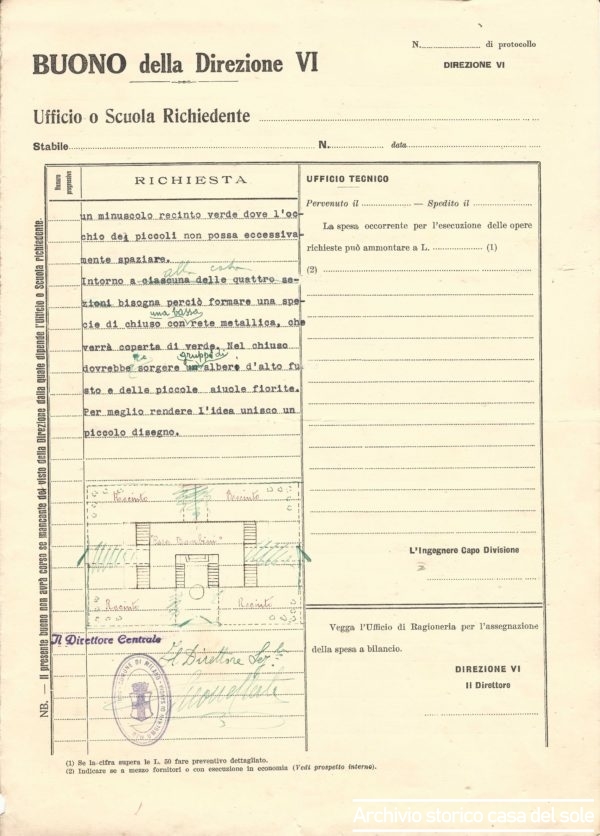 N. di protocollo
BUONO della Direzione VI
DIREZIONE VI
Ufficio o Scuola Richiedente
Stabile N. data
Numero progressivo
RICHIESTA
un minuscolo recinto verde dove l'oc-
chio dei piccoli non possa eccessiva-
mente spaziare.
alla casa
Intorno a ciascuna delle quattro se-
zioni bisogna perciò formare una spe-
una bassa
cie di chiuso con rete metallica, che
verrà coperta di verde. Nel chiuso
gruppo di
dovrebbe sorgere un alberi d'alto fu
sto e delle piccole aiuole fiorite.
Per meglio rendere l'idea unisco un
piccolo disegno.
Recinto Recinto
"Casa Bambini"
Recinto Recinto
Il Direttore Centrale
Il Direttore
COMUNE DI MILANO
UFFICIO TECNICO
Pervenuto il — Spedito il
La spesa occorrente per l'esecuzione delle opere
richieste può ammontare a L. (1)
(2)
L'Ingegnere Capo Divisione
Vegga l'Ufficio di Ragioneria per l'assegnazione
della spesa a bilancio.
DIREZIONE VI
Il Direttore
NB. — Il presente buono non avrà corso se mancante del visto della Direzione dalla quale dipende l'Ufficio o Scuola richiedente.
(1) Se la cifra supera le L. 50 fare preventivo dettagliato.
(2) Indicare se a mezzo fornitori o con esecuzione in economia (Vedi prospetto interno).
Archivio storico casa del sole